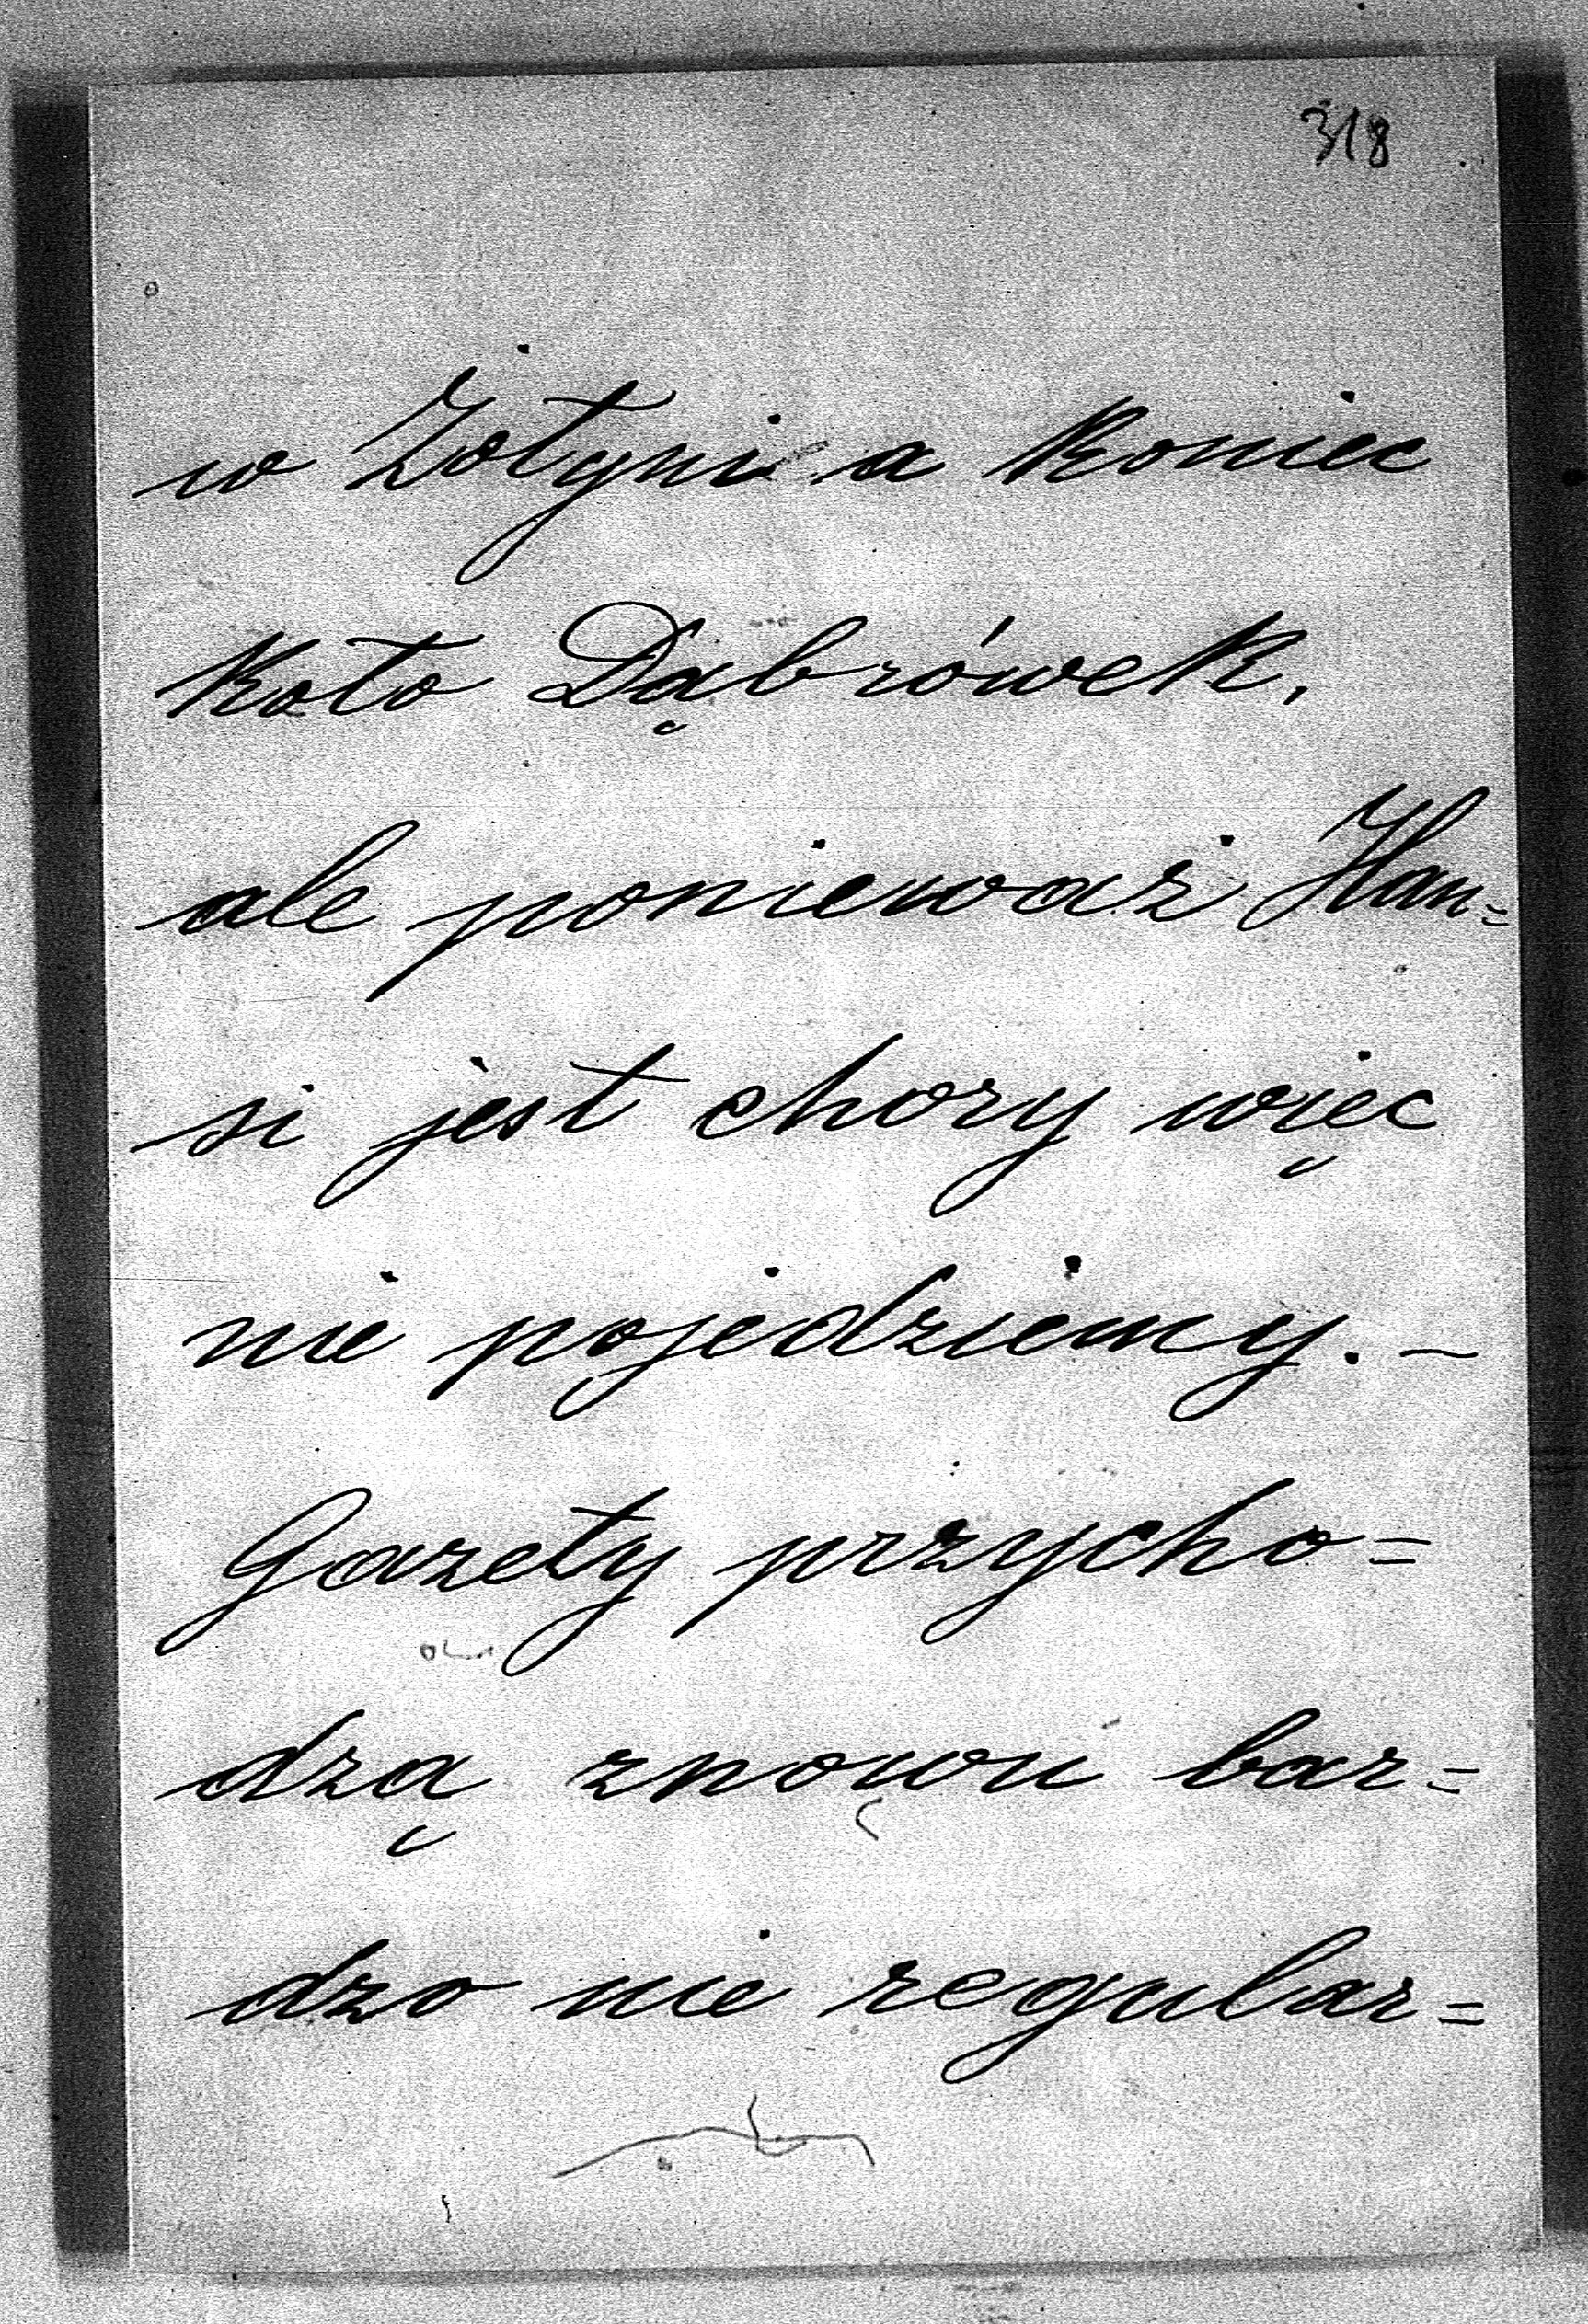 318
w Żołyni a koniec
koło Dąbrówek,
ale ponieważ Han=
si jest chory więc
nie pojedziemy. –
Gazety przycho=
dzą znowu bar=
dzo nie regular=